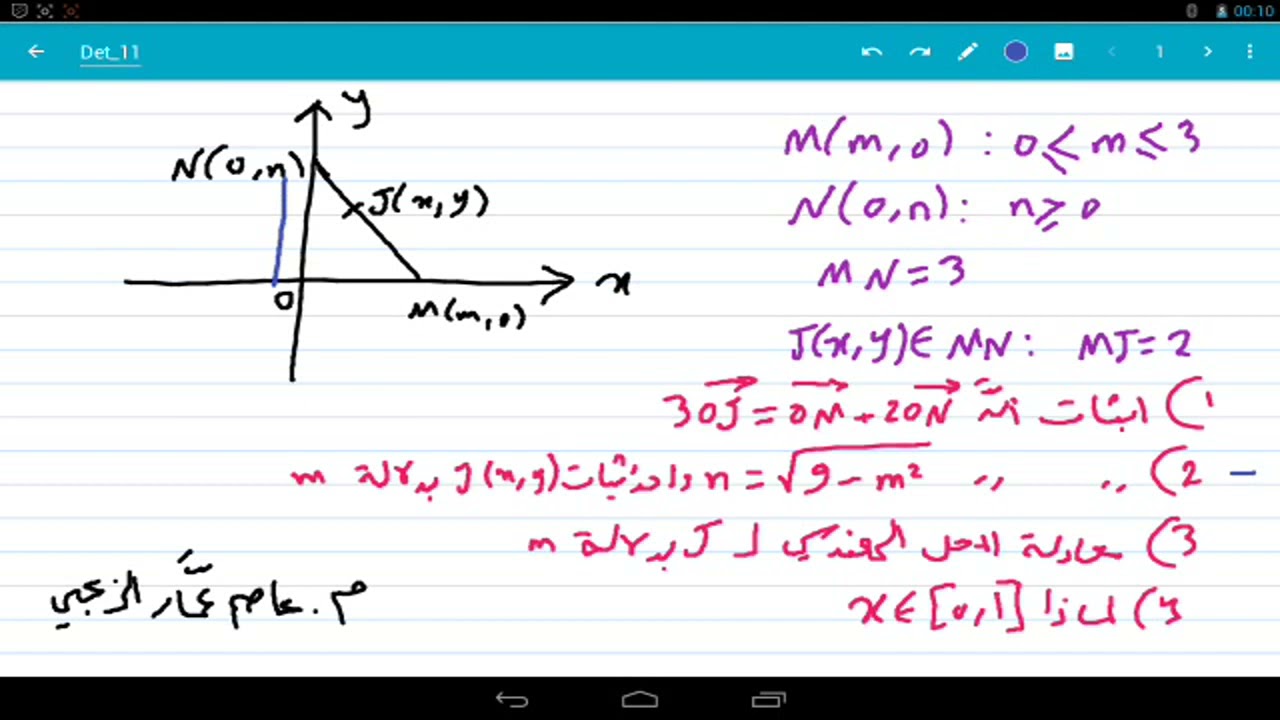 00:10
Det_11
1
y
N(0,n)
J(x,y)
x
0
M(m,0)
M(m,0) : 0 ≤ m ≤ 3
N(0,n): n ≥ 0
MN = 3
J(x,y) ∈ MN: MJ = 2
1) اثبات أنّ 3OJ = OM + 2ON
2) ,, ,, n = √9 - m² واحداثيات J(x,y) بدلالة m
3) معادلة المحل الهندسي لـ J بدلالة m
4) لماذا x ∈ [0,1]
م. عاصم عمّار الزعبي